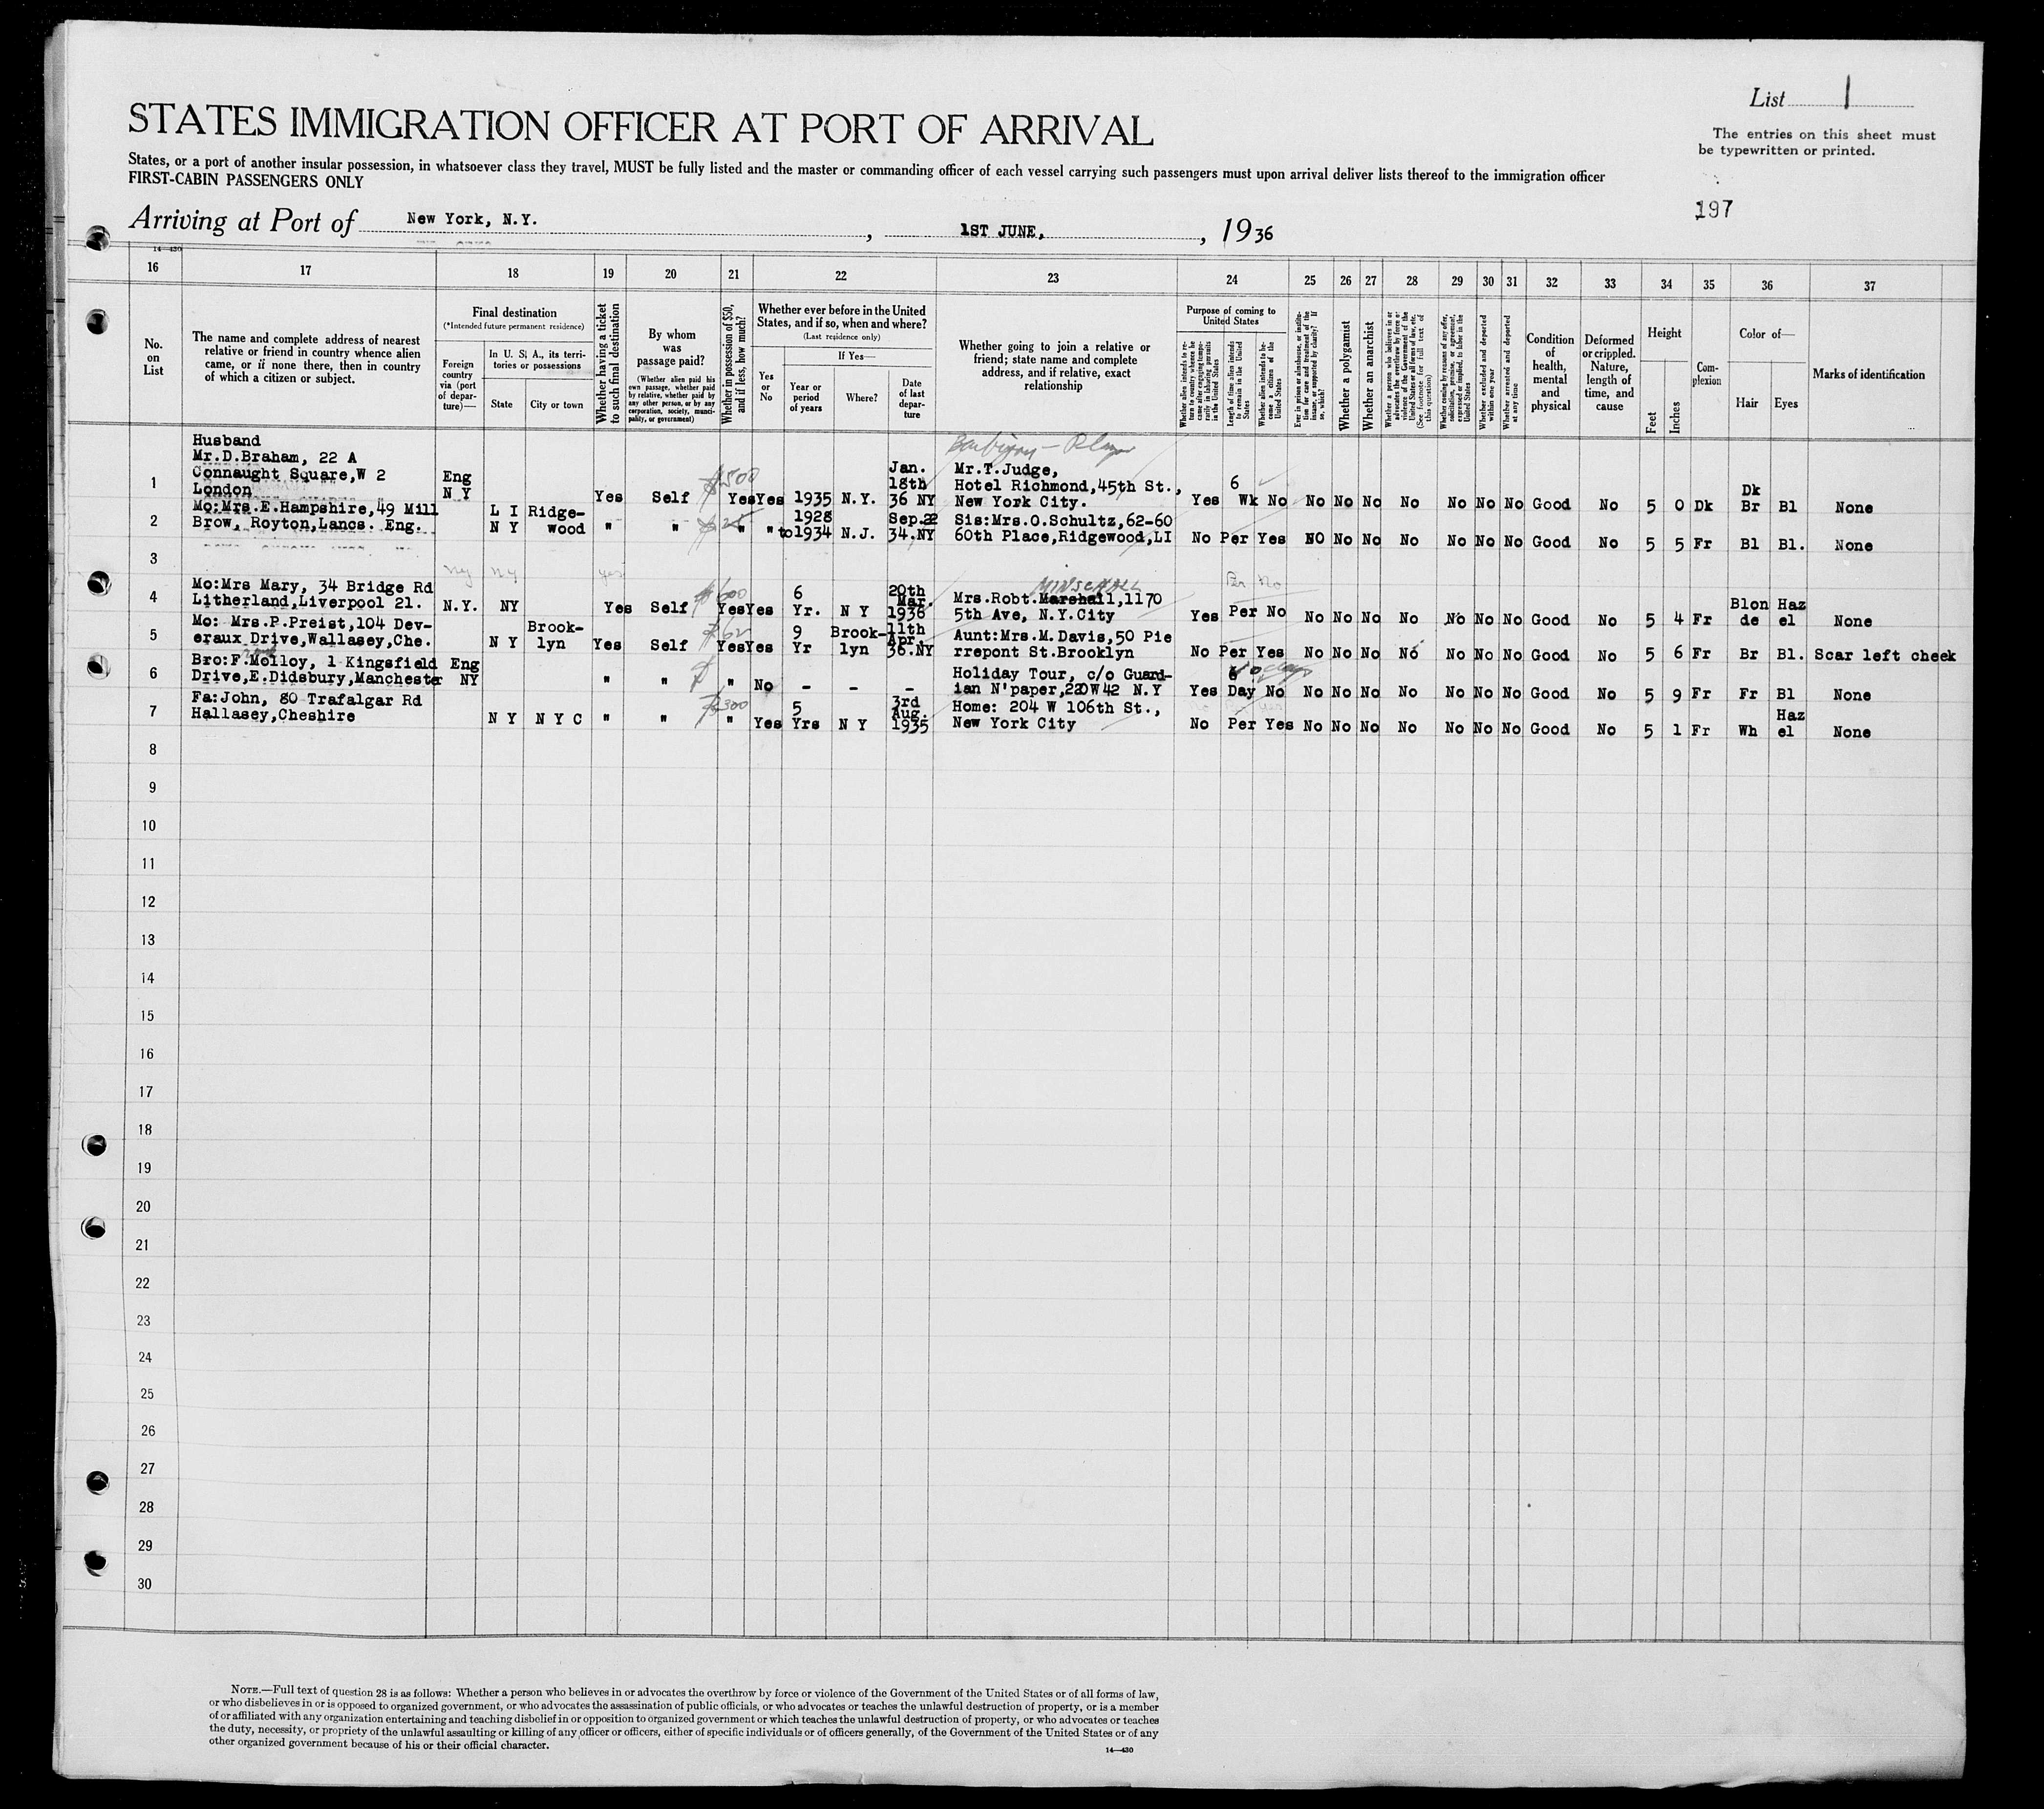 List 1
STATES IMMIGRATION OFFICER AT PORT OF ARRIVAL
The entries on this sheet must
be typewritten or printed.
States, or a port of another insular possession, in whatsoever class they travel, MUST be fully listed and the master or commanding officer of each vessel carrying such passengers must upon arrival deliver lists thereof to the immigration officer
FIRST-CABIN PASSENGERS ONLY
197
Arriving at Port of New York, N.Y. , 1ST JUNE, , 1936
14—430
16 17 18 19 20 21 22 23 24 25 26 27 28 29 30 31 32 33 34 35 36 37
No. on List
The name and complete address of nearest relative or friend in country whence alien came, or if none there, then in country of which a citizen or subject.
Final destination
(*Intended future permanent residence)
Foreign country via (port of departure)—
In U. S. A., its territories or possessions
State
City or town
Whether having a ticket to such final destination
By whom was passage paid?
(Whether alien paid his own passage, whether paid by relative, whether paid by any other person, or by any corporation, society, municipality, or government)
Whether in possession of $50, and if less, how much?
Whether ever before in the United States, and if so, when and where?
(Last residence only)
Yes or No
If Yes—
Year or period of years
Where?
Date of last departure
Whether going to join a relative or friend; state name and complete address, and if relative, exact relationship
Purpose of coming to United States
Whether alien intends to return to country whence he came after engaging temporarily in laboring pursuits in the United States
Length of time alien intends to remain in the United States
Whether alien intends to become a citizen of the United States
Ever in prison or almshouse, or institution for care and treatment of the insane, or supported by charity? If so, which?
Whether a polygamist
Whether an anarchist
Whether a person who believes in or advocates the overthrow by force or violence of the Government of the United States or all forms of law, etc. (See footnote for full text of this question)
Whether coming by reason of any offer, solicitation, promise, or agreement, expressed or implied, to labor in the United States
Whether excluded and deported within one year
Whether arrested and deported at any time
Condition of health, mental and physical
Deformed or crippled. Nature, length of time, and cause
Height
Feet
Inches
Complexion
Color of—
Hair
Eyes
Marks of identification
Husband
Mr.D.Braham, 22 A
Connaught Square,W 2
London
1 Eng N Y Yes Self $500 Yes Yes 1935 N.Y. Jan. 18th 36 NY Mr.T.Judge, Hotel Richmond,45th St., New York City. Yes 6 Wk No No No No No No No No Good No 5 0 Dk Dk Br Bl None
Mo:Mrs.E.Hampshire,49 Mill
Brow, Royton,Lancs. Eng.
2 L I N Y Ridge-wood " " " " 1928 to1934 N.J. Sep.22 34.NY Sis:Mrs.O.Schultz,62-60 60th Place,Ridgewood,LI No Per Yes NO No No No No No No Good No 5 5 Fr Bl Bl. None
3 NY NY yes Per No
Mo:Mrs Mary, 34 Bridge Rd
Litherland,Liverpool 21.
4 N.Y. NY Yes Self $600 Yes Yes 6 Yr. N Y 20th Mar. 1936 Mrs.Robt.Marshall,1170 MINSCHALL 5th Ave, N.Y.City Yes Per No No No No No No No No Good No 5 4 Fr Blonde Hazel None
Mo: Mrs.P.Preist,104 Dev-
eraux Drive,Wallasey,Che.
5 N Y Brook-lyn Yes Self $62 Yes Yes 9 Yr Brook-lyn 11th Apr. 36.NY Aunt:Mrs.M.Davis,50 Pie rrepont St.Brooklyn No Per Yes No No No No No No No Good No 5 6 Fr Br Bl. Scar left cheek
Bro:F.Molloy, 1 Kingsfield
Drive,E.Didsbury,Manchester
6 Eng NY " " " No - - - Holiday Tour, c/o Guard- ian N'paper,220W42 N.Y Yes days Day No No No No No No No No Good No 5 9 Fr Fr Bl None
Fa:John, 80 Trafalgar Rd
Hallasey,Cheshire
7 N Y N Y C " " $300 " Yes 5 Yrs N Y 3rd Aug. 1935 Home: 204 W 106th St., New York City No Per Yes No No No No No No No Good No 5 1 Fr Wh Hazel None
8
9
10
11
12
13
14
15
16
17
18
19
20
21
22
23
24
25
26
27
28
29
30
NOTE.—Full text of question 28 is as follows: Whether a person who believes in or advocates the overthrow by force or violence of the Government of the United States or of all forms of law,
or who disbelieves in or is opposed to organized government, or who advocates the assassination of public officials, or who advocates or teaches the unlawful destruction of property, or is a member
of or affiliated with any organization entertaining and teaching disbelief in or opposition to organized government or which teaches the unlawful destruction of property, or who advocates or teaches
the duty, necessity, or propriety of the unlawful assaulting or killing of any officer or officers, either of specific individuals or of officers generally, of the Government of the United States or of any
other organized government because of his or their official character.
14—430